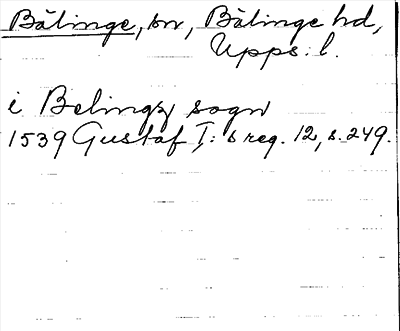 Bälinge, sn, Bälinge hd,
Upps. l.
i Belingz sogn
1539 Gustaf I: s reg. 12, s. 249.